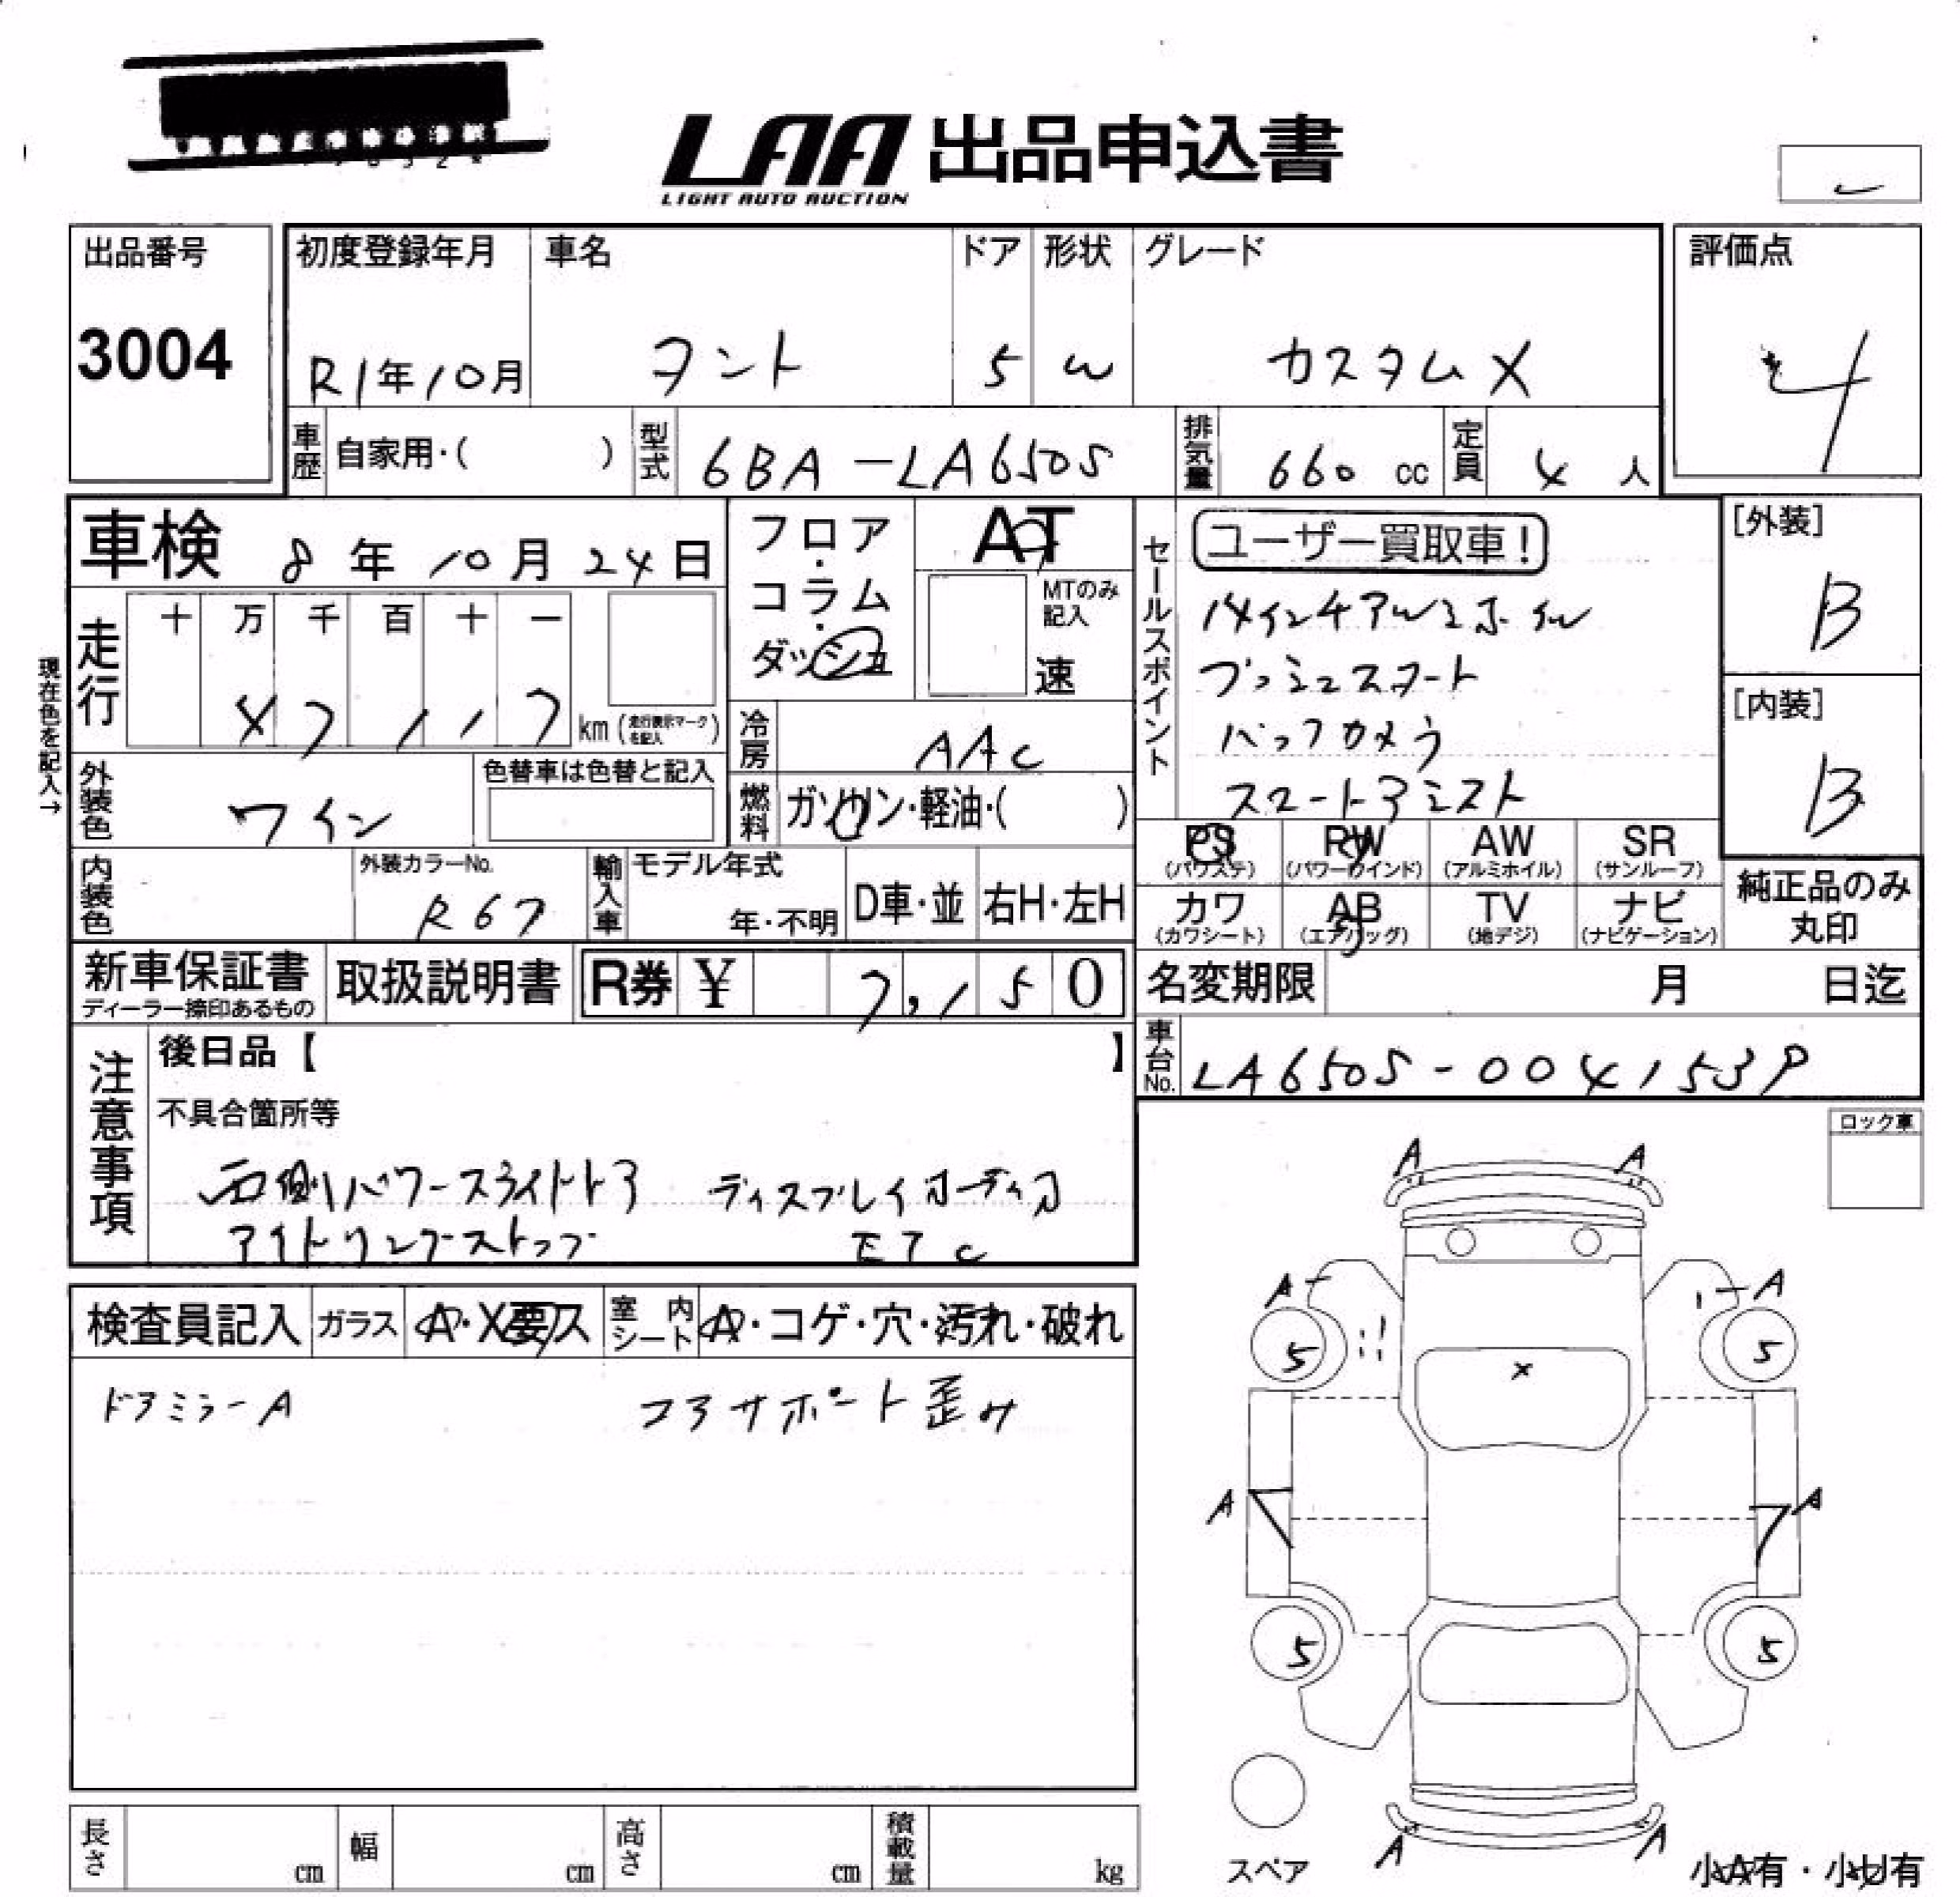 LAA 出品申込書
LIGHT AUTO AUCTION
出品番号
3004
初度登録年月
R1年10月
車名
タント
ドア
5
形状
W
グレード
カスタムX
評価点
4
車歴 自家用・( )
型式 6BA-LA650S
排気量 660 cc
定員 4 人
車検 8年10月24日
フロア・コラム・ダッシュ
AT
MTのみ記入
速
セールスポイント
ユーザー買取車!
14インチアルミホイル
プッシュスタート
バックカメラ
スマートアシスト
[外装]
B
[内装]
B
現在色を記入→
走行
十 万 千 百 十 一
47117 km (走行表示マークを記入)
冷房 AAC
外装色 ワイン
色替車は色替と記入
燃料 ガソリン・軽油・( )
PS (パワステ)
PW (パワーウインド)
AW (アルミホイル)
SR (サンルーフ)
内装色
外装カラーNo.
R67
輸入車
モデル年式
年・不明
D車・並
右H・左H
カワ (カワシート)
AB (エアバッグ)
TV (地デジ)
ナビ (ナビゲーション)
純正品のみ丸印
新車保証書
ディーラー捺印あるもの
取扱説明書
R券 ¥ 7,150
名変期限 月 日迄
注意事項
後日品【 】
不具合箇所等
右側パワースライドドア ディスプレイオーディオ
アイドリングストップ ETC
車台No. LA650S-0041539
ロック車
検査員記入
ガラス A・X要ス
室内シート A・コゲ・穴・汚れ・破れ
ドアミラーA コアサポート歪み
A A
A A
5 5
X
A A
5 5
A A
スペア
小A有・小U有
長さ cm
幅 cm
高さ cm
積載量 kg